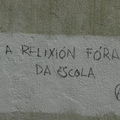 A RELIXIÓN FÓRA
DA ESCOLA